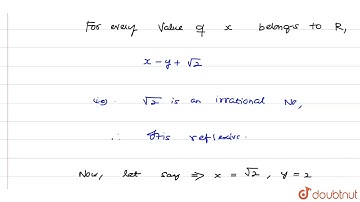 For every value of x belongs to R,
x - y + √2
(i). √2 is an irrational No,
∴ It is reflexive.
Now, let say ⇒ x = √2 , y = 2
doubtnut